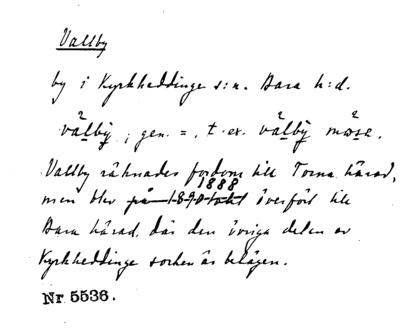 Vallby
by i Kyrkheddinge s:n. Bara h:d.
vålby̌, gen. =, t. ex. vålby̌ måse.
Vallby räknades fordom till Torna härad,
men blev på 1890-talet 1888 överförd till
Bara härad, där den övriga delen av
Kyrkheddinge socken är belägen.
Nr 5536.